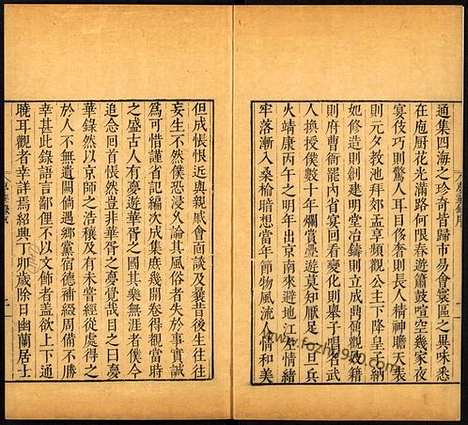 通集四海之珍奇皆歸市易會寰區之異味悉
在庖厨花光滿路何限春遊簫鼓喧空幾家夜
宴伎巧則驚人耳目侈奢則長人精神瞻天表
則元夕教池拜郊孟享頻觀公主下降皇子納
妃修造則創建明堂冶鑄則立成鼎鼐觀妓籍
則府曹衙罷內省宴回看變化則舉子唱名武
人換授僕數十年爛賞疊遊莫知厭足一旦兵
火靖康丙午之明年出京南來避地江左情緒
牢落漸入桑榆暗想當年節物風流人情和美
但成悵恨近與親戚會面談及曩昔後生往往
妄生不然僕恐浸久論其風俗者失於事實誠
為可惜謹省記編次成集庶幾開卷得覩當時
之盛古人有夢遊華胥之國其樂無涯者僕今
追念回首悵然豈非華胥之夢覺哉目之曰夢
華錄然以京師之浩穰及有未嘗經從處得之
於人不無遺闕倘遇鄉黨宿德補綴周備不勝
幸甚此錄語言鄙俚不以文飾者盖欲上下通
曉耳觀者幸詳焉紹興丁卯歲除日幽蘭居士